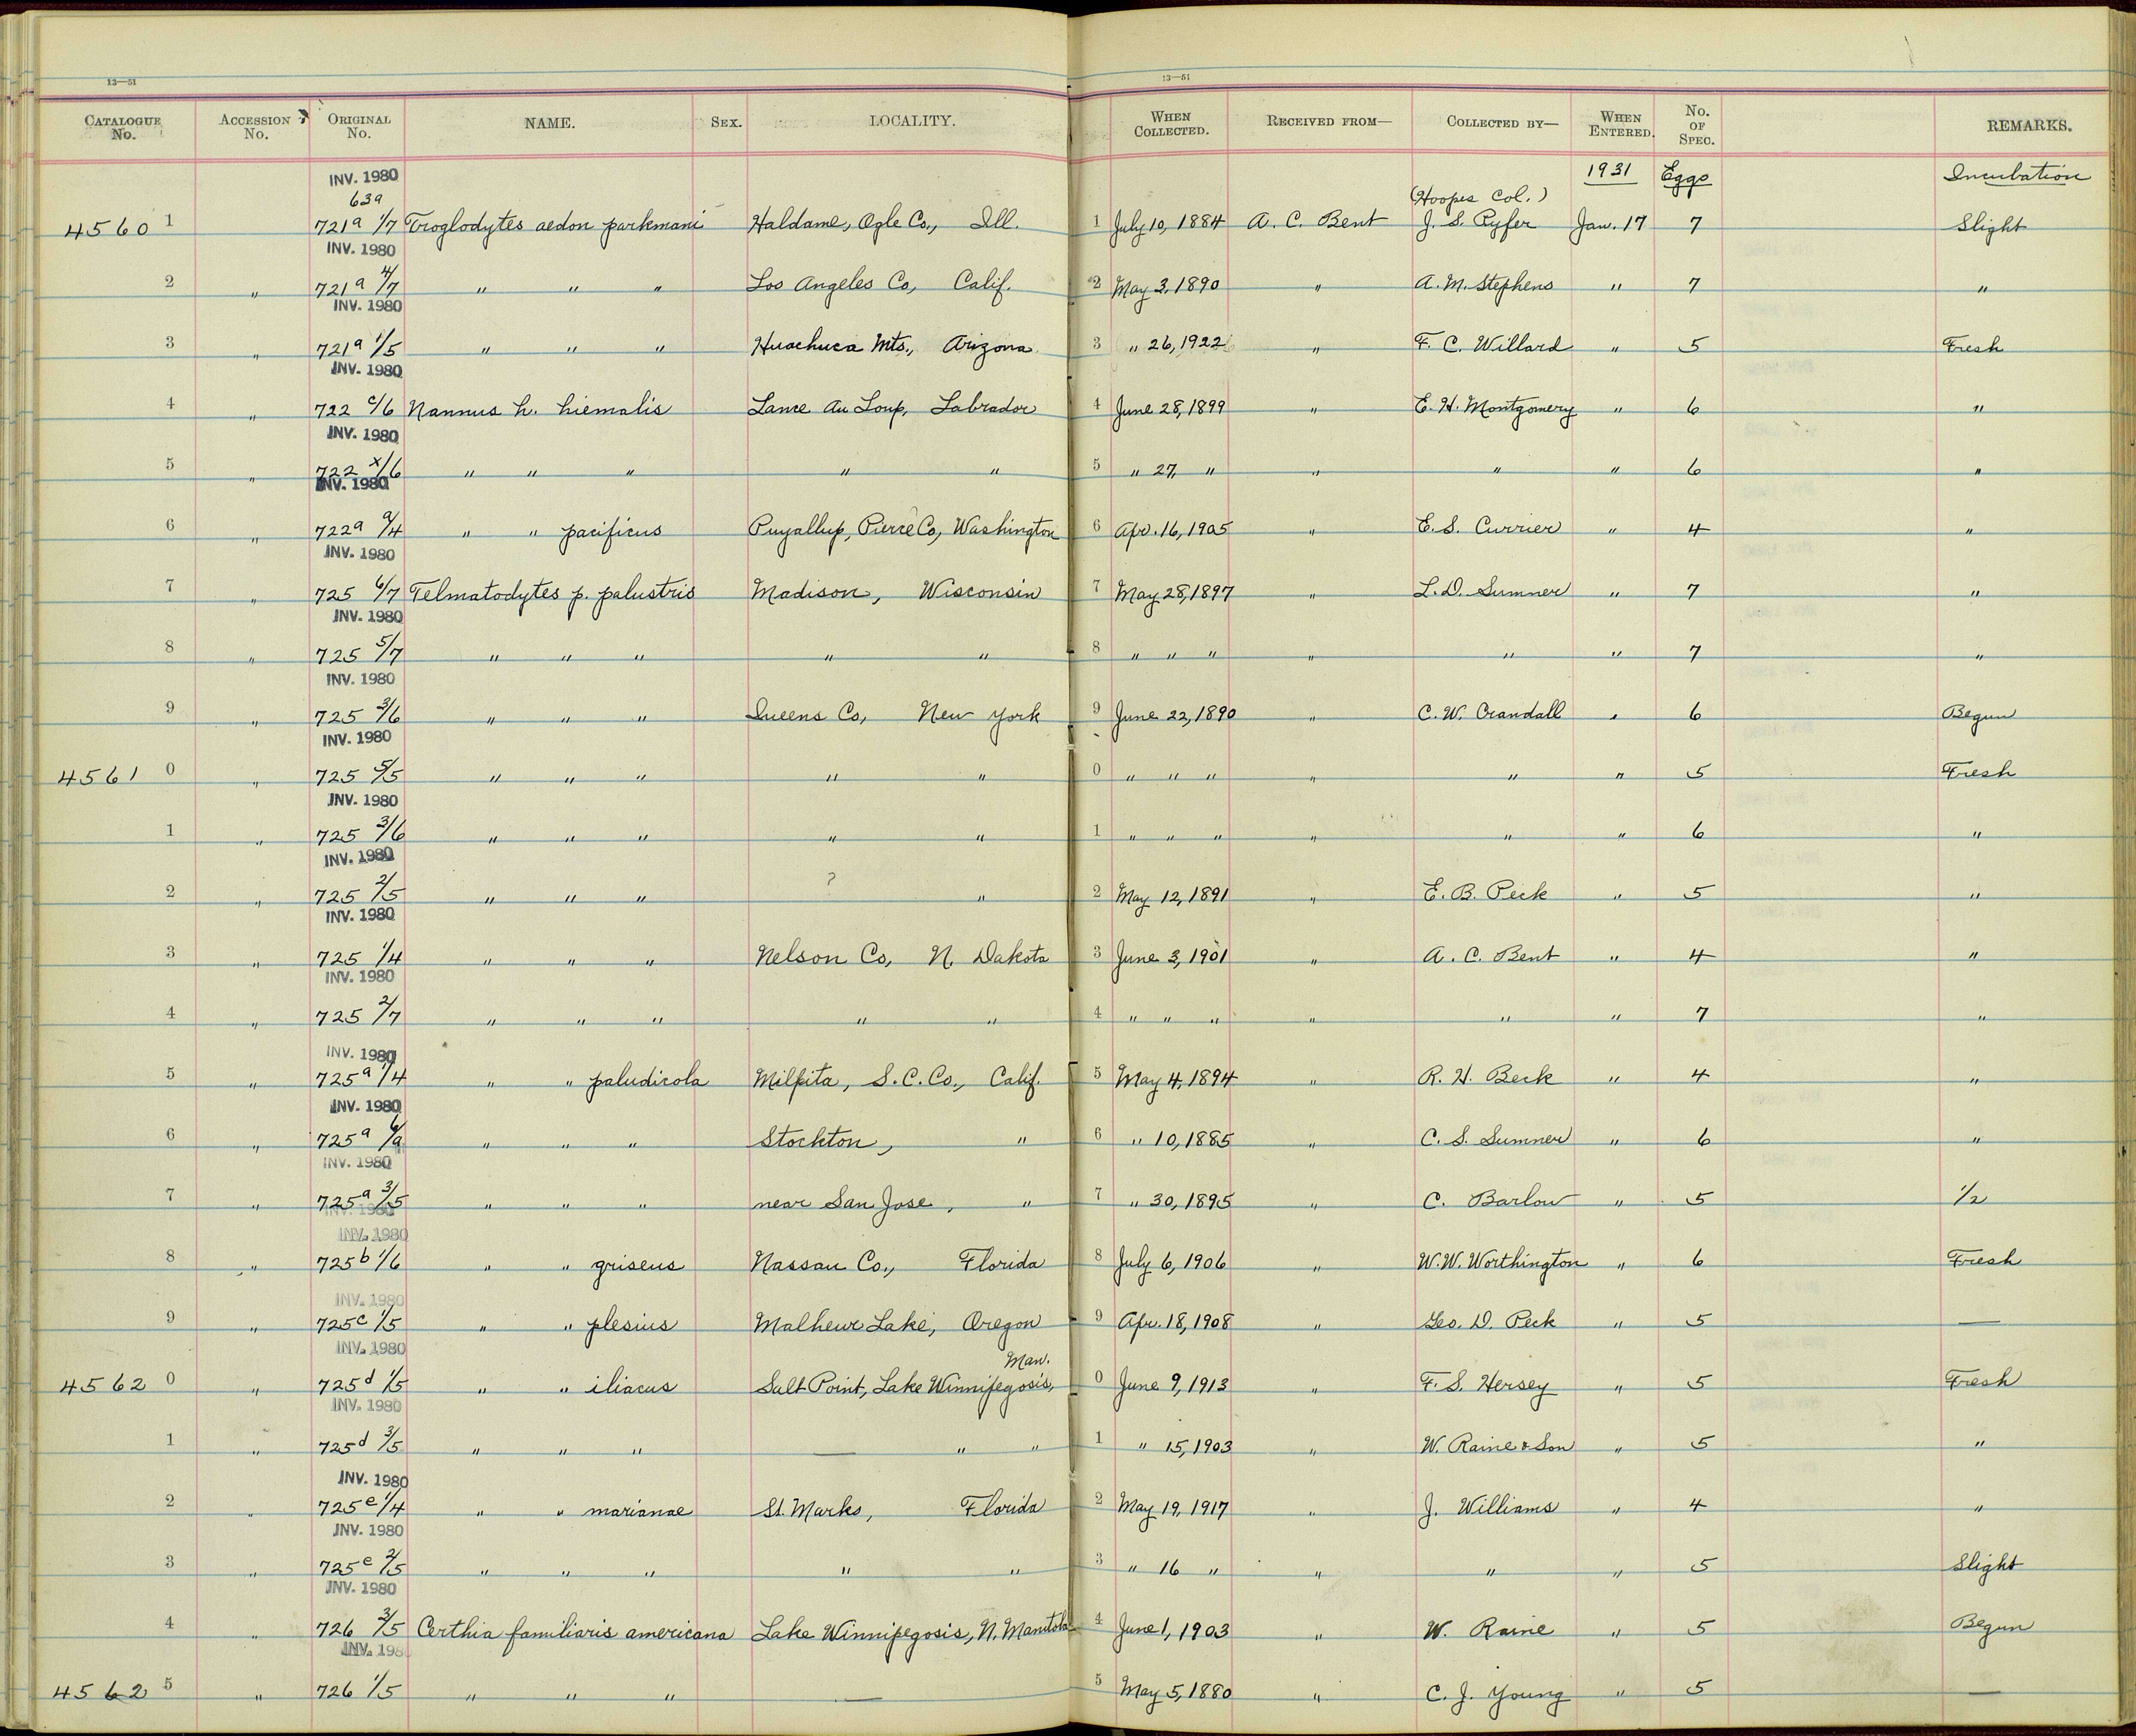 13—51 13—51
CATALOGUE No. ACCESSION No. ORIGINAL No. NAME. SEX. LOCALITY. WHEN COLLECTED. RECEIVED FROM— COLLECTED BY— WHEN ENTERED. No. OF SPEC. REMARKS.
INV. 1980 1931 Eggs Incubation
63a (Hoopes Col.)
4560 1 721a 1/7 Troglodytes aedon parkmani Haldame, Ogle Co., Ill. 1 July 10, 1884 A. C. Bent J. S. Ryfer Jan. 17 7 Slight
INV. 1980
2 " 721a 4/7 " " " Los Angeles Co, Calif. 2 May 3, 1890 " A. M. Stephens " 7 "
INV. 1980
3 " 721a 1/5 " " " Huachuca Mts., Arizona 3 " 26, 1922 " F. C. Willard " 5 Fresh
INV. 1980
4 " 722 c/6 Nannus h. hiemalis Lance Au Loup, Labrador 4 June 28, 1899 " E. H. Montgomery " 6 "
INV. 1980
5 " 722 x/6 " " " " " 5 " 27, " " " " 6 "
INV. 1980
6 " 722a a/4 " " pacificus Puyallup, Pierce Co, Washington 6 Apr. 16, 1905 " E. S. Currier " 4 "
INV. 1980
7 " 725 6/7 Telmatodytes p. palustris Madison, Wisconsin 7 May 28, 1897 " L. D. Sumner " 7 "
INV. 1980
8 " 725 5/7 " " " " " 8 " " " " " " 7 "
INV. 1980
9 " 725 3/6 " " " Queens Co, New York 9 June 22, 1890 " C. W. Crandall " 6 Begun
INV. 1980
4561 0 " 725 5/5 " " " " " 0 " " " " " " 5 Fresh
INV. 1980
1 " 725 3/6 " " " " " 1 " " " " " " 6 "
INV. 1980
2 " 725 2/5 " " " ? " 2 May 12, 1891 " E. B. Peck " 5 "
INV. 1980
3 " 725 1/4 " " " Nelson Co, N. Dakota 3 June 3, 1901 " A. C. Bent " 4 "
INV. 1980
4 " 725 2/7 " " " " " 4 " " " " " " 7 "
INV. 1980
5 " 725a 1/4 " " paludicola Milpita, S. C. Co., Calif. 5 May 4, 1894 " R. H. Beck " 4 "
INV. 1980
6 " 725a " " " Stockton, " 6 " 10, 1885 " C. S. Sumner " 6 "
INV. 1980
7 " 725a 3/5 " " " near San Jose, " 7 " 30, 1895 " C. Barlow " 5 1/2
INV. 1980
INV. 1980
8 " 725b 1/6 " " griseus Nassau Co., Florida 8 July 6, 1906 " W. W. Worthington " 6 Fresh
INV. 1980
9 " 725c 1/5 " " plesius Malheur Lake, Oregon 9 Apr. 18, 1908 " Geo. D. Peck " 5 —
INV. 1980
Man.
4562 0 " 725d 1/5 " " iliacus Salt Point, Lake Winnipegosis, 0 June 9, 1913 " F. S. Hersey " 5 Fresh
INV. 1980
1 " 725d 3/5 " " " — " " 1 " 15, 1903 " W. Raine & Son " 5 "
INV. 1980
2 " 725e 1/4 " " marianae St. Marks, Florida 2 May 19, 1917 " J. Williams " 4 "
INV. 1980
3 " 725e 2/5 " " " " " 3 " 16 " " " " 5 Slight
INV. 1980
4 " 726 3/5 Certhia familiaris americana Lake Winnipegosis, N. Manitoba 4 June 1, 1903 " W. Raine " 5 Begun
INV. 198
4562 5 " 726 1/5 " " " — 5 May 5, 1880 " C. J. Young " 5 —